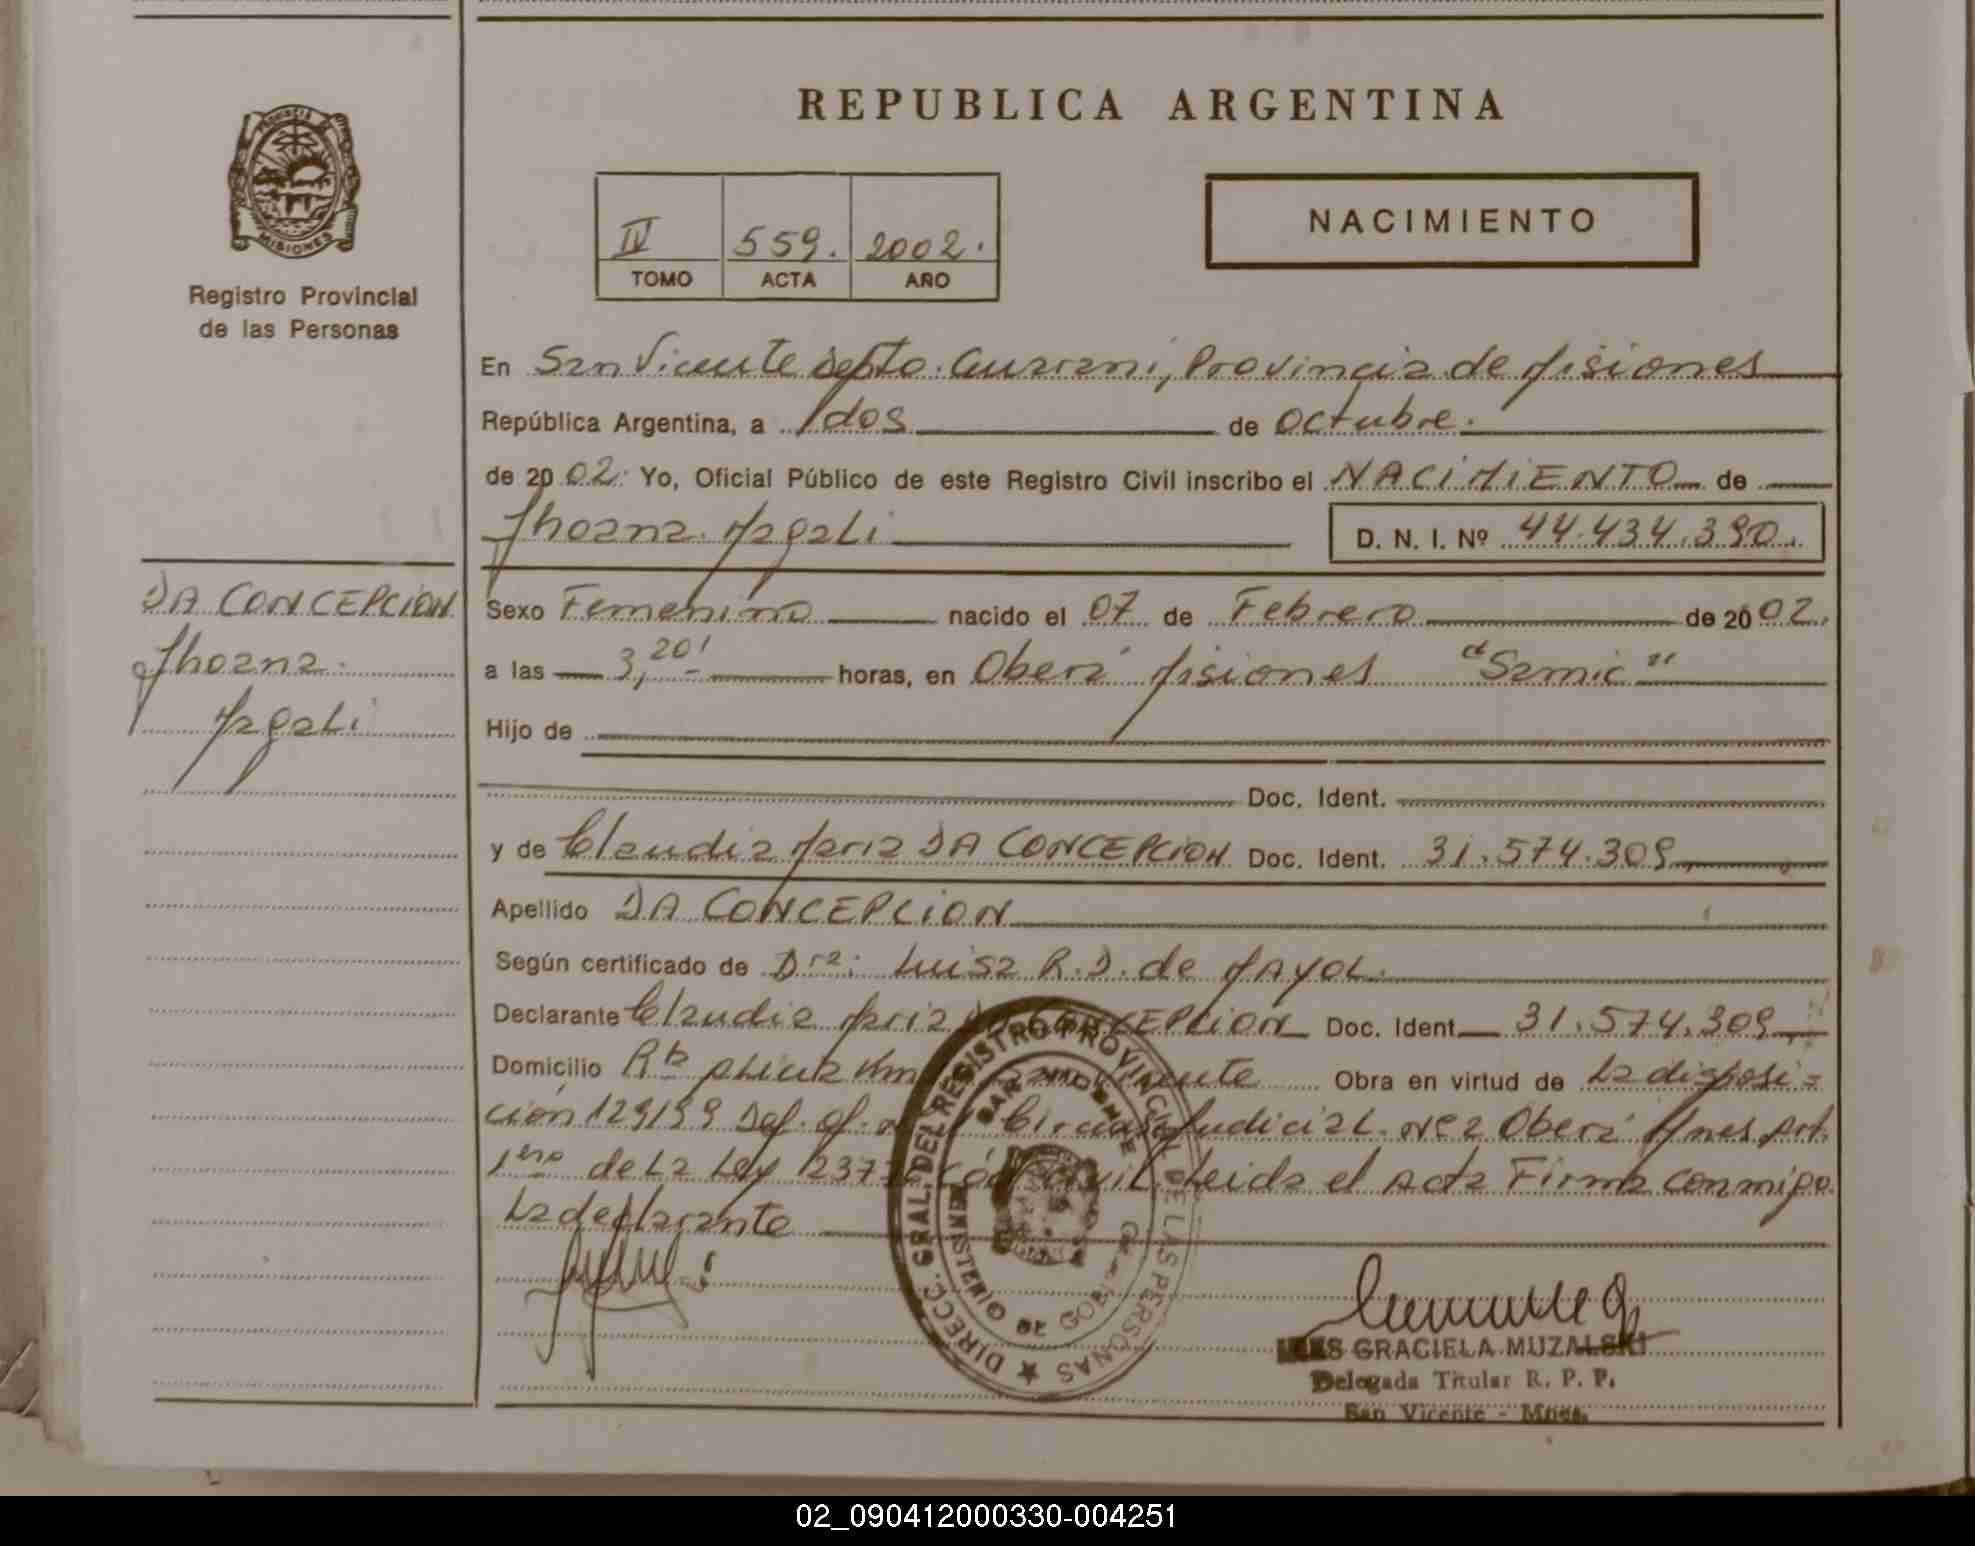 PROVINCIA DE
MISIONES
Registro Provincial
de las Personas
REPUBLICA ARGENTINA
IV 559. 2002.
TOMO ACTA AÑO
NACIMIENTO
En San Vicente Depto. Guarani, Provincia de Misiones
República Argentina, a dos de Octubre.
de 2002. Yo, Oficial Público de este Registro Civil inscribo el NACIMIENTO de
Jhoana Magali
D. N. I. Nº 44.434.390.
DA CONCEPCION
Jhoana
Magali
Sexo Femenino nacido el 07 de Febrero de 2002.
a las 3,20' horas, en Oberá Misiones "Samic"
Hijo de
Doc. Ident.
y de Claudia Maria DA CONCEPCION Doc. Ident. 31.574.309
Apellido DA CONCEPCION
Según certificado de Dra: Luisa R.D. de MAYOL.
Declarante Claudia Maria DA CONCEPCION Doc. Ident 31.574.309
Domicilio Vicente Obra en virtud de La disposi=
ción 129/99 Def. of. Judicial Nº2 Oberá Mnes Art.
1ero de La Ley Leida el Acta Firma conmigo
La declarante
DIRECC. GRAL. DEL REGISTRO PROVINCIAL DE LAS PERSONAS
SAN VICENTE
MINISTERIO DE GOBIERNO
GRACIELA MUZALSKI
Delegada Titular R. P. P.
San Vicente - Mnes.
02_090412000330-004251